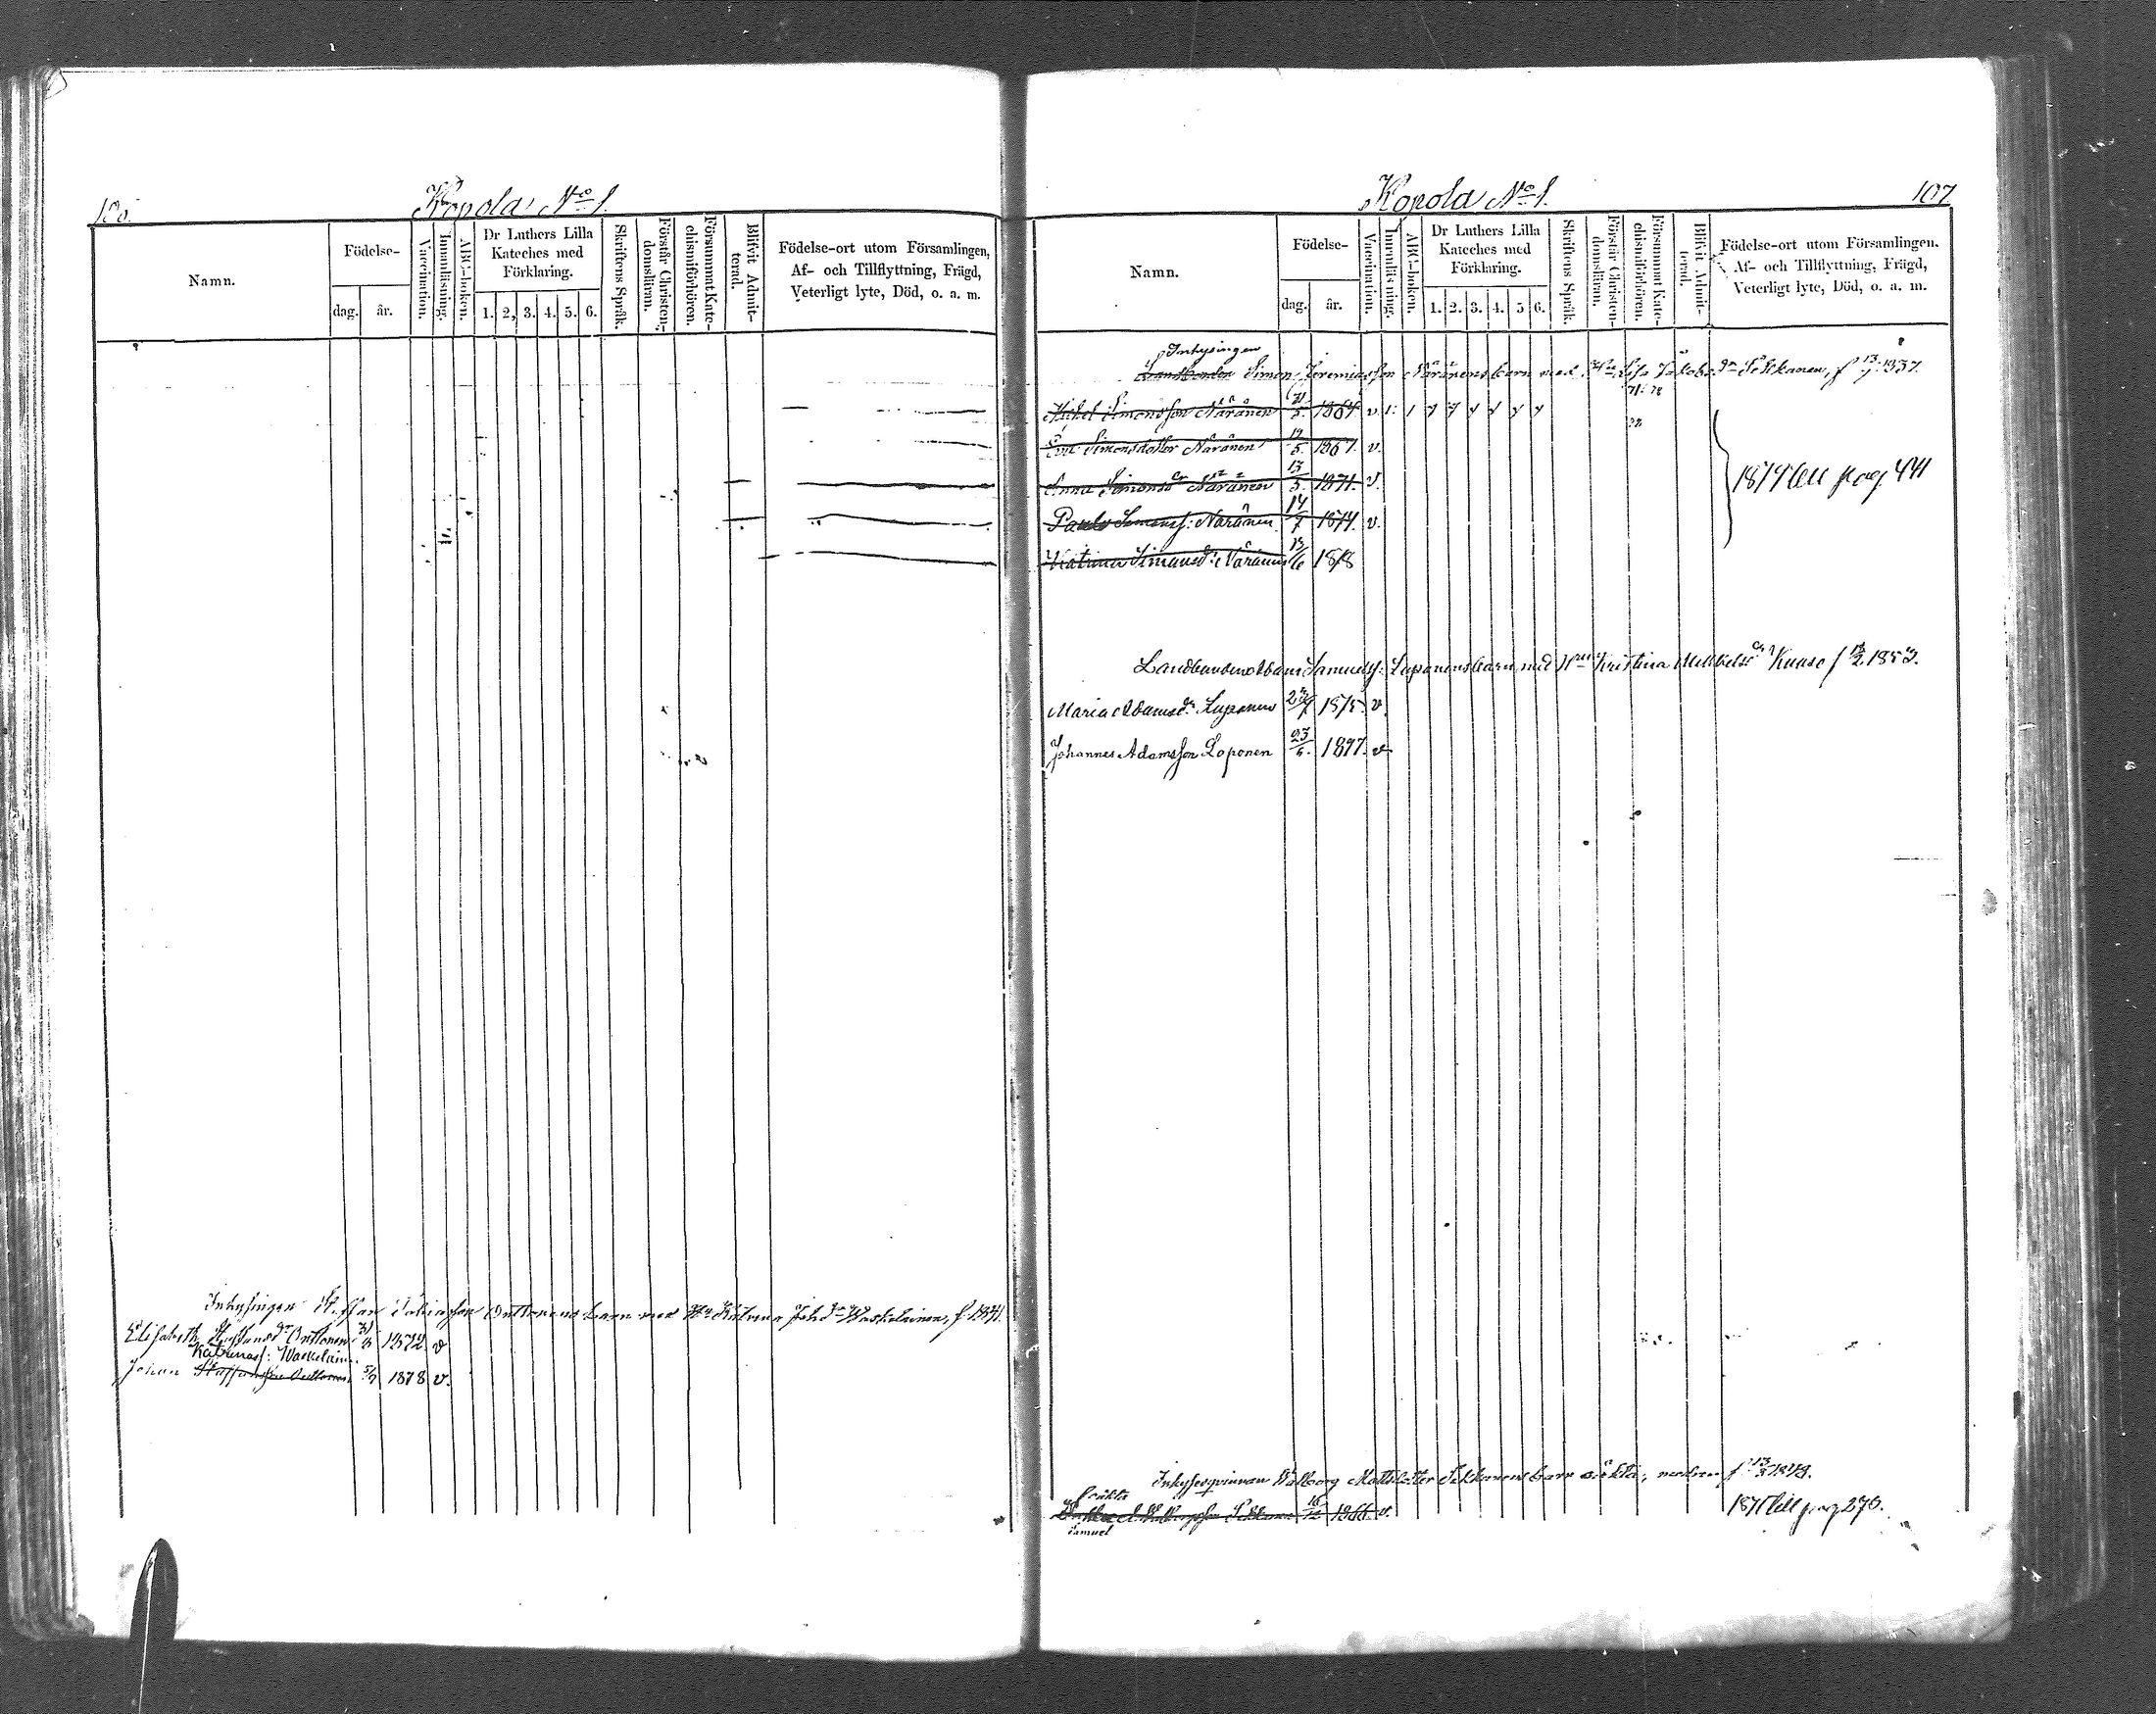 Kopola No 1.
Namn.
Födelse-
dag. år.
Vaccination.
Innanläsning.
ABC-boken.
Dr Luthers Lilla
Kateches med
Förklaring.
1. 2, 3. 4. 5. 6.
Skriftens Språk.
Förstår Christen-
domsläran.
Försummat Kate-
chismiförhören.
Blifvit Admit-
terad.
Födelse-ort utom Församlingen,
Af- och Tillflyttning, Frägd,
Veterligt lyte, Död, o. a. m.
Inhysingen Onttonens barn med Hu Katrina Waskelainen, f. 1841.
Elisabeth Onttonen 1872 v
Katrinass: Waskelain
Johan Staffansson Onttonen 5/7 1878 v.
Kopola No 1. 107
Namn.
Födelse-
dag. år.
Vaccination.
Innanläsning.
ABC-boken.
Dr Luthers Lilla
Kateches med
Förklaring.
1. 2. 3. 4. 5 6.
Skriftens Språk.
Förstår Christen-
domsläran.
Försummat Kate-
chismiförhören.
Blifvit Admit-
terad.
Födelse-ort utom Församlingen.
Af- och Tillflyttning, Frägd,
Veterligt lyte, Död, o. a. m.
Inhysingen
Landbonden Simon Jeremiasson Näränens barn med Hu Lisa Jakobsdr Sekkanen, f 1837.
Mikel Simonsson Näränen 1864 v
Eva Simonsdotter Näränen 19/5 1867. v.
Anna Simonsdr Näränen 13/5. 1871. v.
1879 till pag. 441
Paulo Simonss: Näränen 14/7 1874. v.
Katrina Simonsd: Näränen 1878
Landbonden Adam Samuelss: Loponens barn med Hu Kristina Mikkelsdr Kuuse f 1853.
Maria Adamsdr. Loponen 1875. v.
Johannes Adamsson Loponen 23/6. 1877. v
Inhysesqvinnan Walborg Mattsdotter Sekkanens barn oäkta, modren f. 1843.
oäkta
1866. v. till pag 270.
Samuel